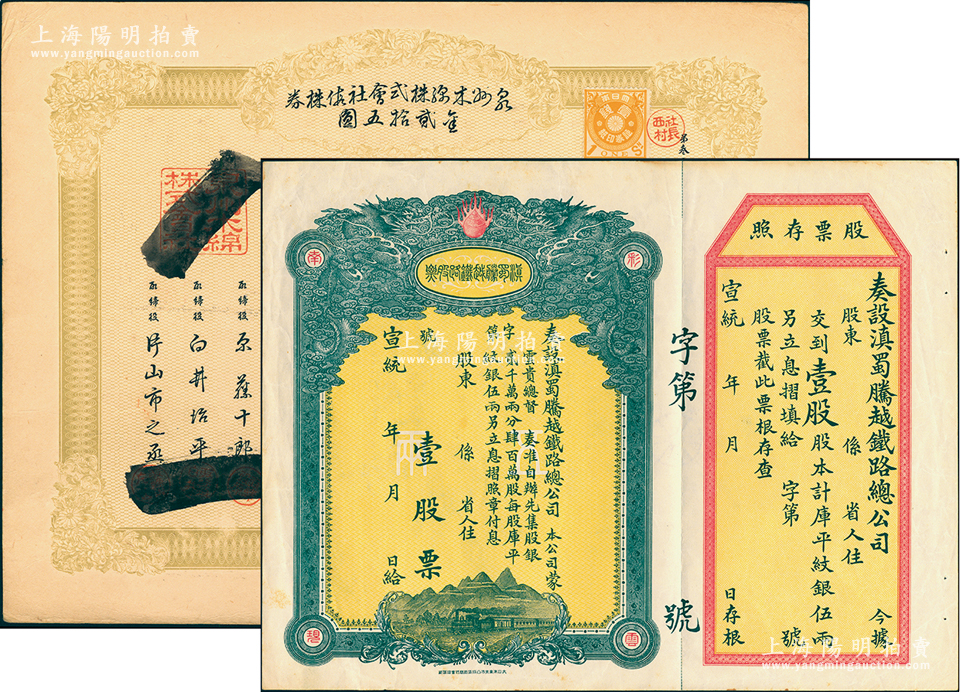 上海陽明拍賣
www.yangmingauction.com
泉州木綿株式會社佶株券
金貳拾五圓
社長
西村
取締役 原藤十郎
取締役 白井治平
取締役 片山市之丞
彩
南
雲
碧
滇蜀騰越鐵路股票
奏設滇蜀騰越鐵路總公司 本公司蒙
雲貴總督 奏准自辦先集股銀
貳千萬兩分肆百萬股每股庫平
紋銀伍兩另立息摺照章付息
字第
號
股東 係 省人住
壹股票
宣統 年 月 日給
伍
兩
上海陽明拍賣
www.yangmingauction.com
字第 號
股票存照
奏設滇蜀騰越鐵路總公司 今據
股東 係 省人住
交到壹股股本計庫平紋銀伍兩
另立息摺填給 字第 號
股票截此票根存查
宣統 年 月 日存根
上海陽明拍賣
www.yangmingauction.com